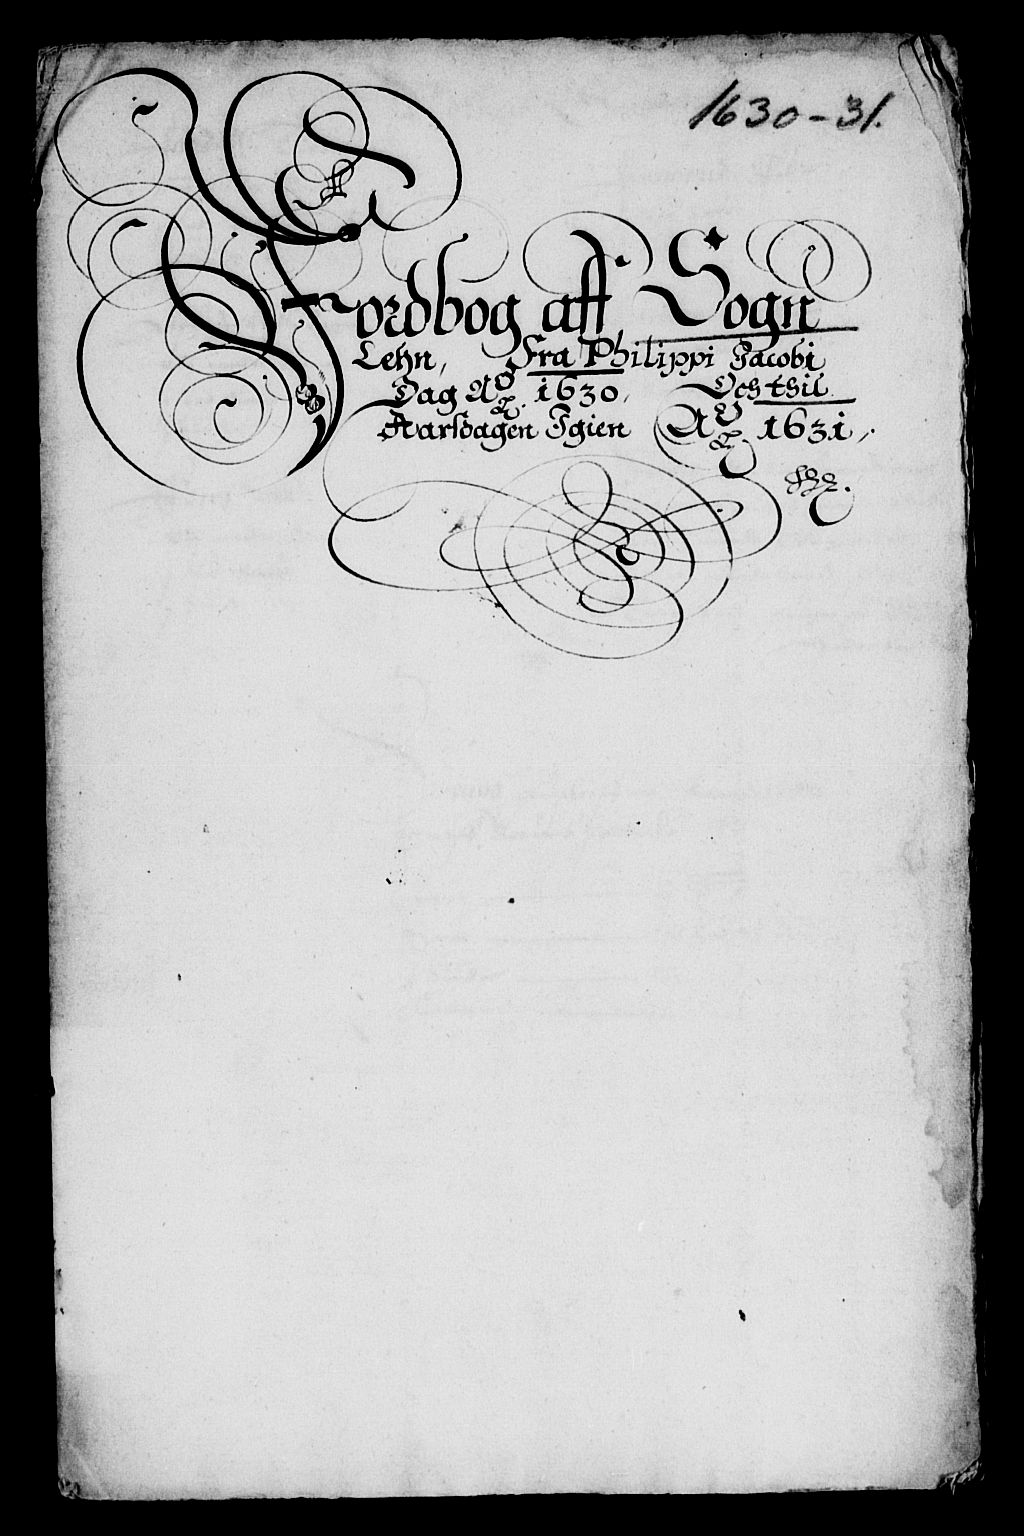 1630-31.
Jordbog aff Sogn
Lehn, Fra Philippi Jacobi
Dag Aõ 1630, Och thil
Aarsdagen Igien Aõ 1631,